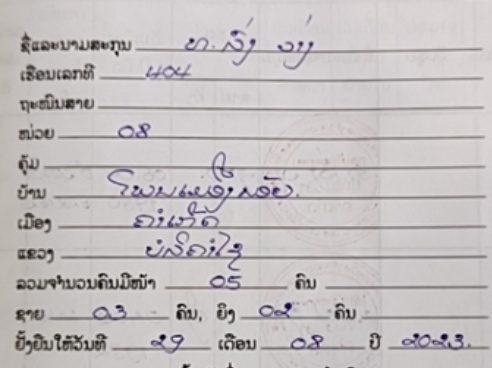 ຊື່ແລະນາມສະກຸນ ທ. ລົ່ງ ວ່າງ
ເຮືອນເລກທີ 404
ຖະໜົນສາຍ
ໜ່ວຍ 08
ຄຸ້ມ
ບ້ານ ໂພນ
ເມືອງ ຄຳເກີດ
ແຂວງ ບໍລິຄຳໄຊ
ລວມຈຳນວນຄົນມີໜ້າ 05 ຄົນ
ຊາຍ 03 ຄົນ, ຍິງ 02 ຄົນ
ຢັ້ງຢືນໃຫ້ວັນທີ 29 ເດືອນ 08 ປີ 2023.